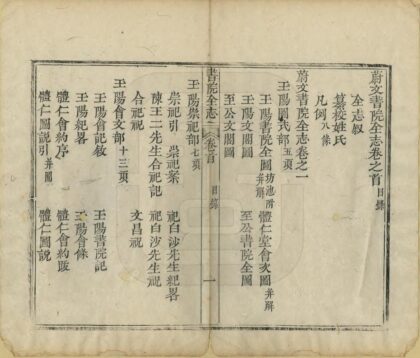 蔚文書院全志卷之首 目錄
全志敘
纂校姓氏
凡例 八條
蔚文書院全志卷之一
王陽圖式部 五項
王陽書院全圖 坊池附 并解 體仁堂會文圖 并解
王公文閣圖 至公書院全圖
至公文閣圖
書院全志 卷首 目錄 一
王陽崇祀部 七項
崇祀引 崇祀案 祀白沙先生紀畧
陳王二先生合祀記 祀白沙先生祝
合祀祝 文昌祝
王陽會文部 十三項
王陽會記敘 王陽書院記
王陽紀畧 王陽會條
體仁會約序 體仁會約版
體仁圖說引 并圖 體仁圖說